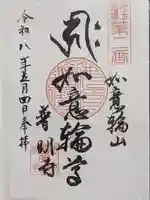 如意輪山
如意輪尊
普明寺
令和八年五月四日奉拝